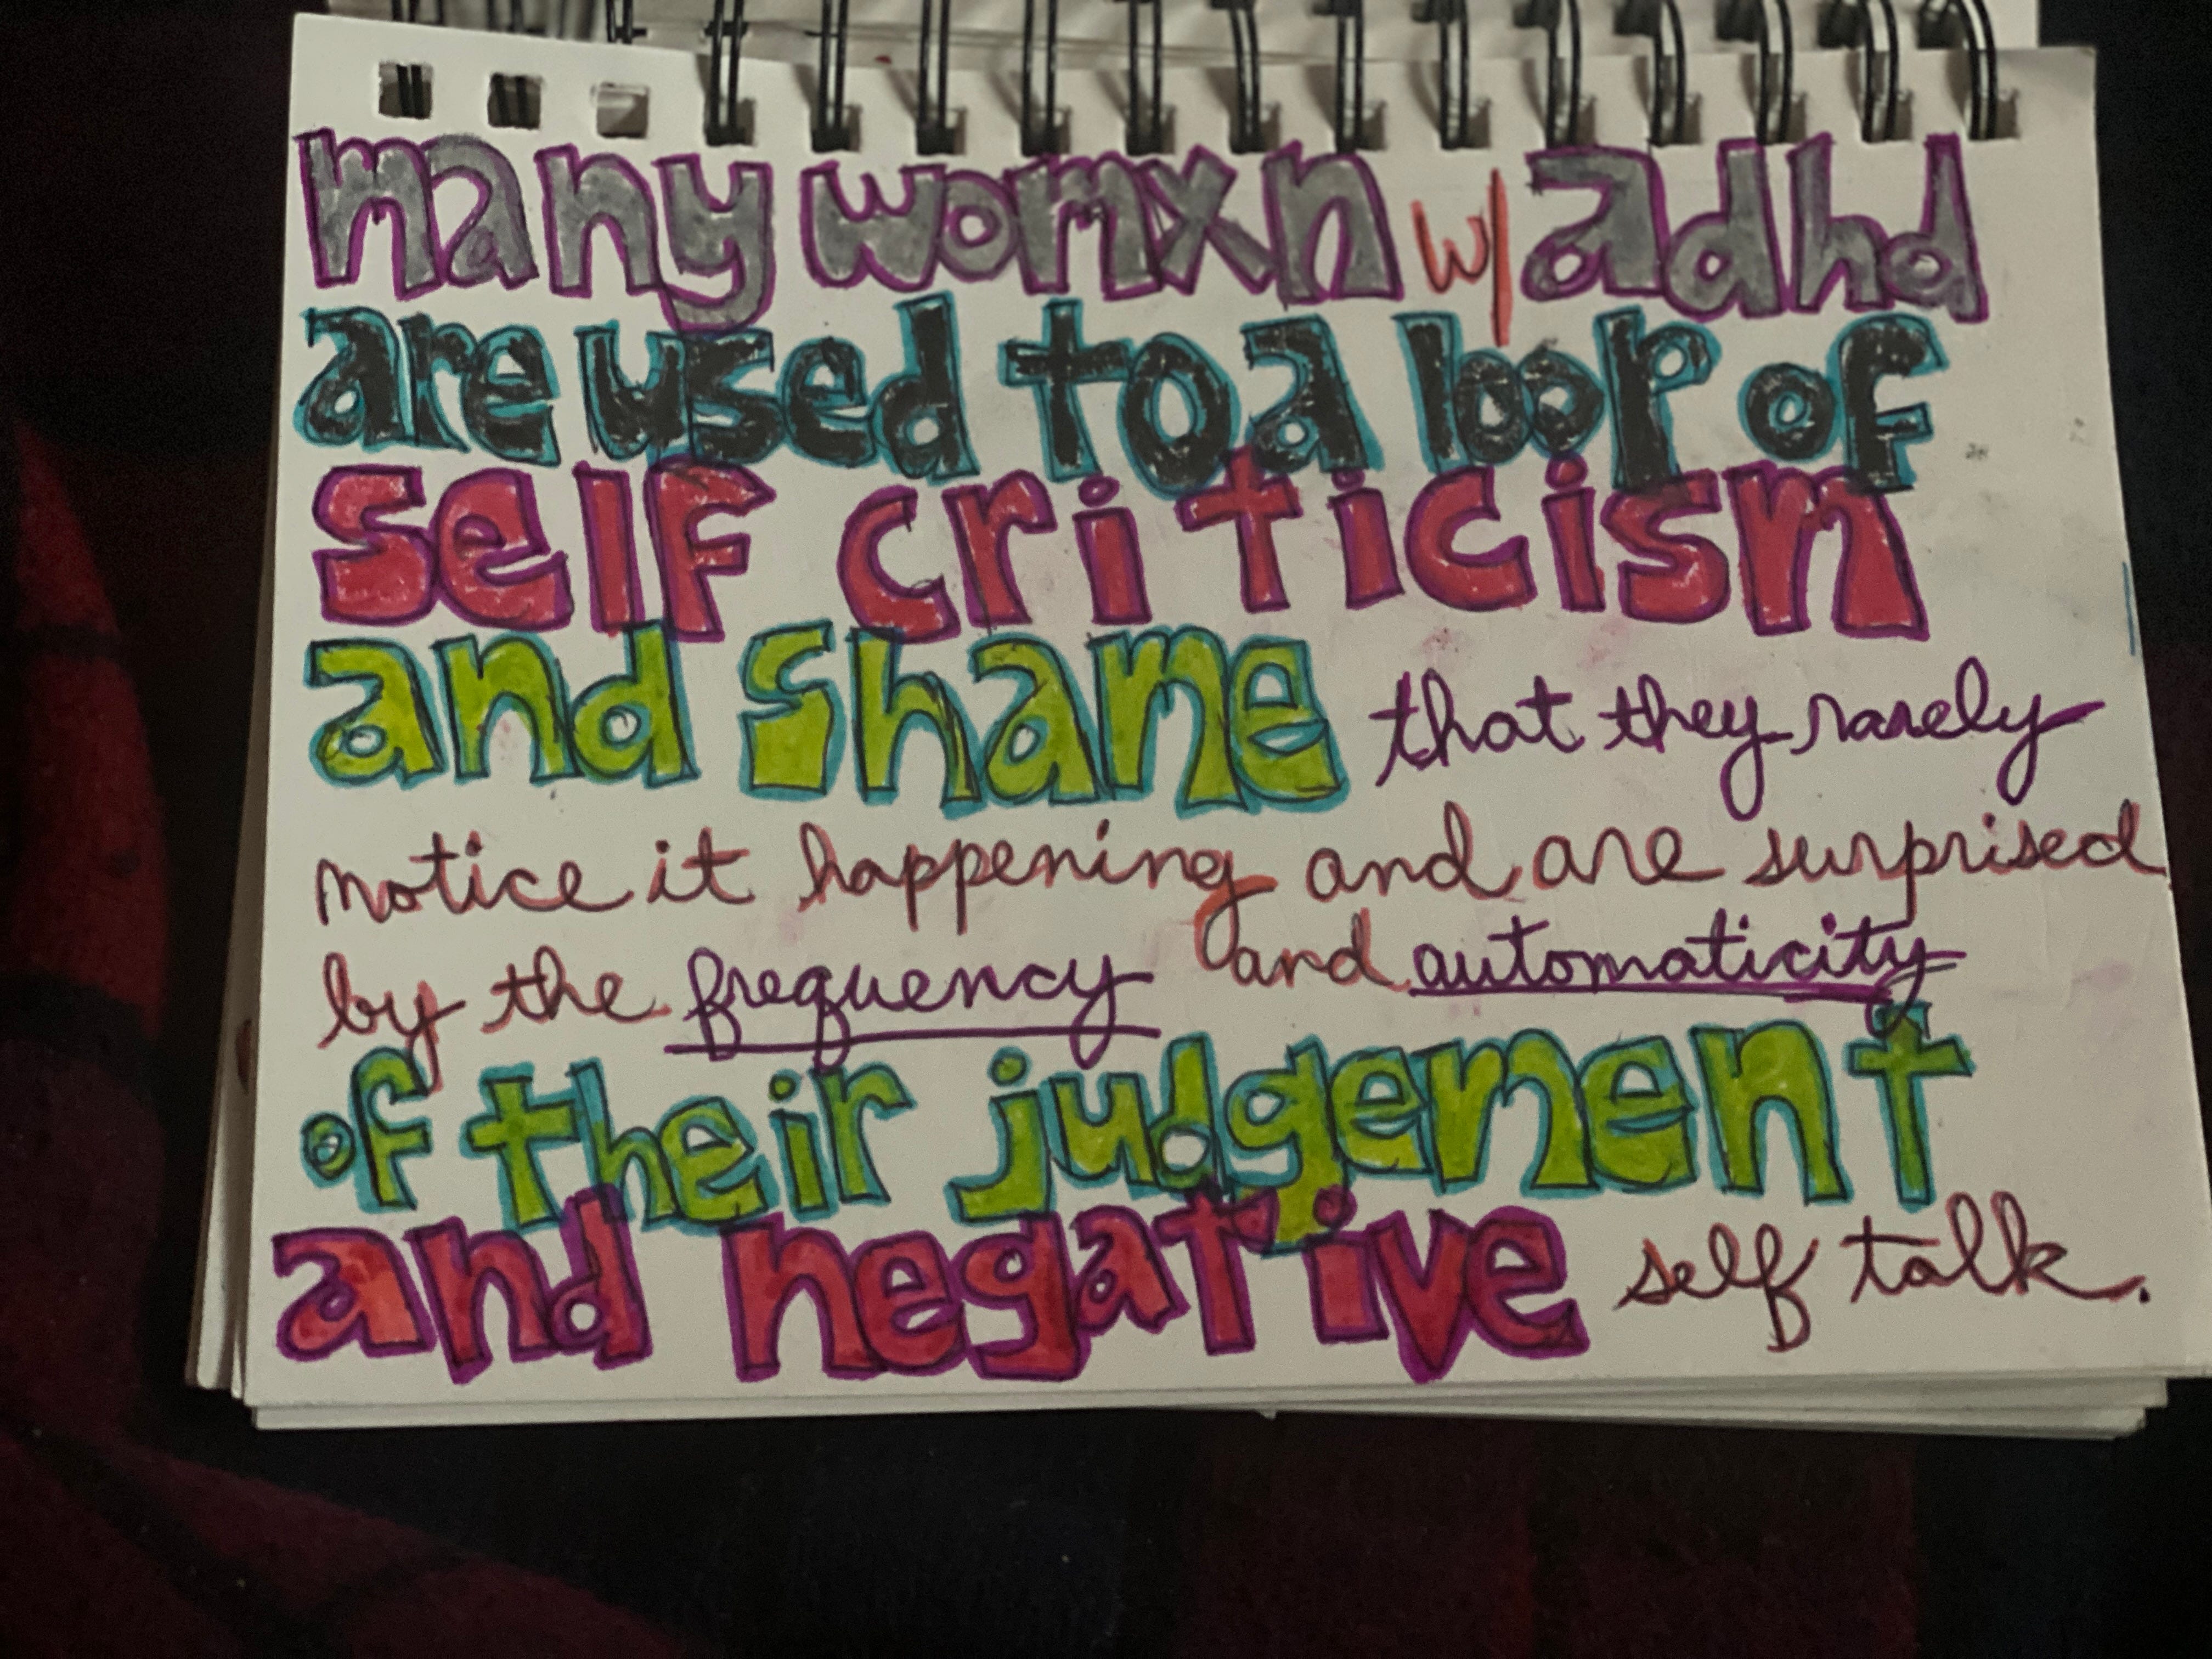 many womxn w/ adhd
are used to a loop of
self criticism
and shame that they rarely
notice it happening and are surprised
by the frequency and automaticity
of their judgement
and negative self talk.